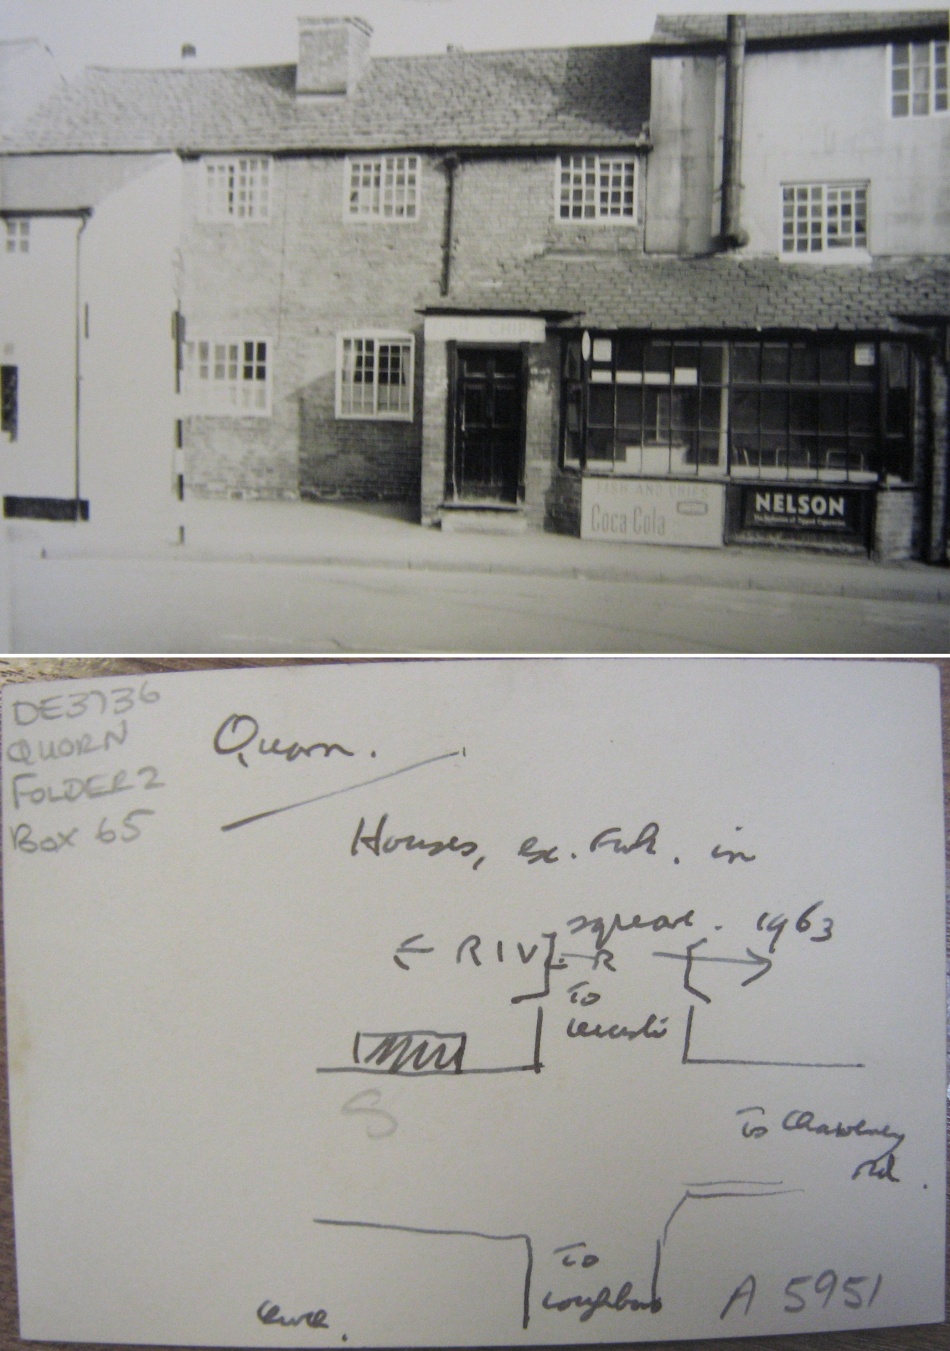 CHIPS
FISH AND CHIPS
Coca-Cola
NELSON
DE3736
QUORN
FOLDER 2
Box 65
Quorn.
Houses, ex. in
square. 1963
← RIV R →
To
S
To
Rd.
To
A 5951